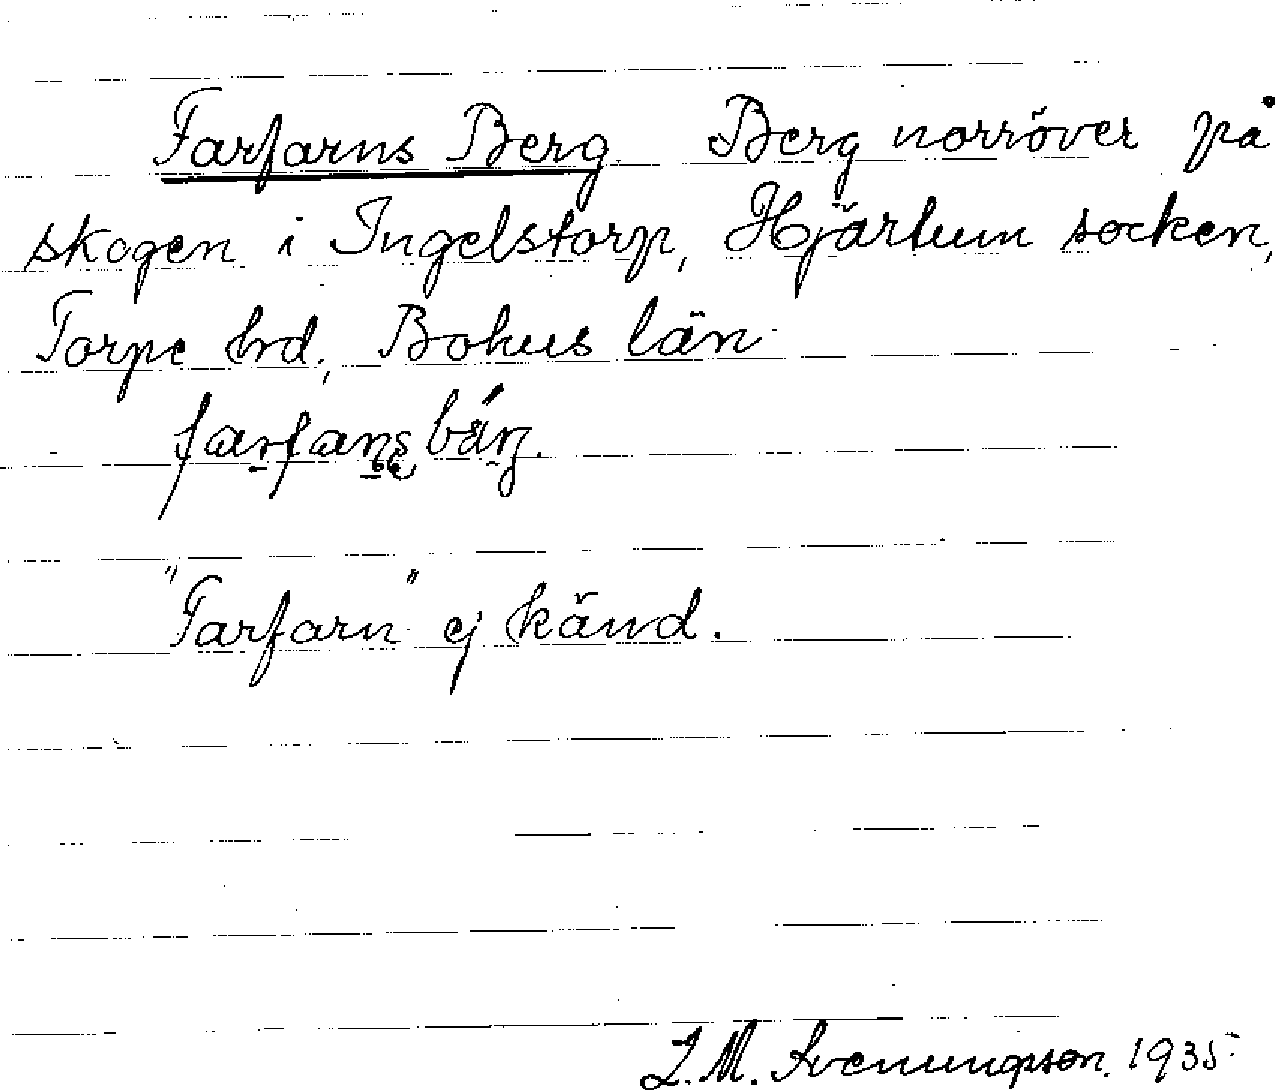 Farfarns Berg Berg norröver på
skogen i Ingelstorp, Hjärtum socken,
Torpe hrd, Bohus län
"Farfarn" ej känd.
J. M. Svenungsson. 1935